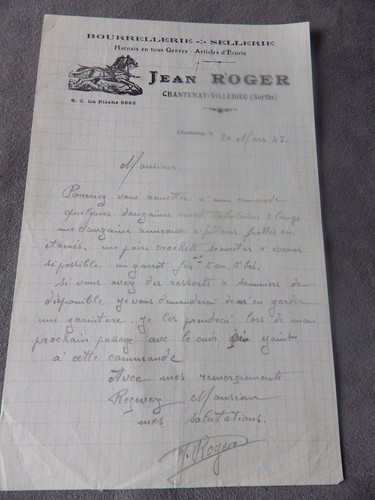 BOURRELLERIE - SELLERIE
Harnais en tous Genres - Articles d'Ecurie
JEAN ROGER
CHANTENAY-VILLEDIEU (Sarthe)
R. C. La Flèche 5563
Chantenay, le 20 Mars 43
Monsieur
Pourriez vous remettre a ma commande
quelques douzaine rivets tubulaires
une douzaine anneaux a pitons frottés en
étamés, une paire crochets a écrous
si possible, un garrot
si vous avez des ressorts a sommiers de
disponible je vous demanderai de m'en garder
une garniture je les prendrai lors de mon
prochain passage avec le cuir ayant
a cette commande
Avec mes remerciements
Recevez Monsieur
mes salutations.
J. Roger